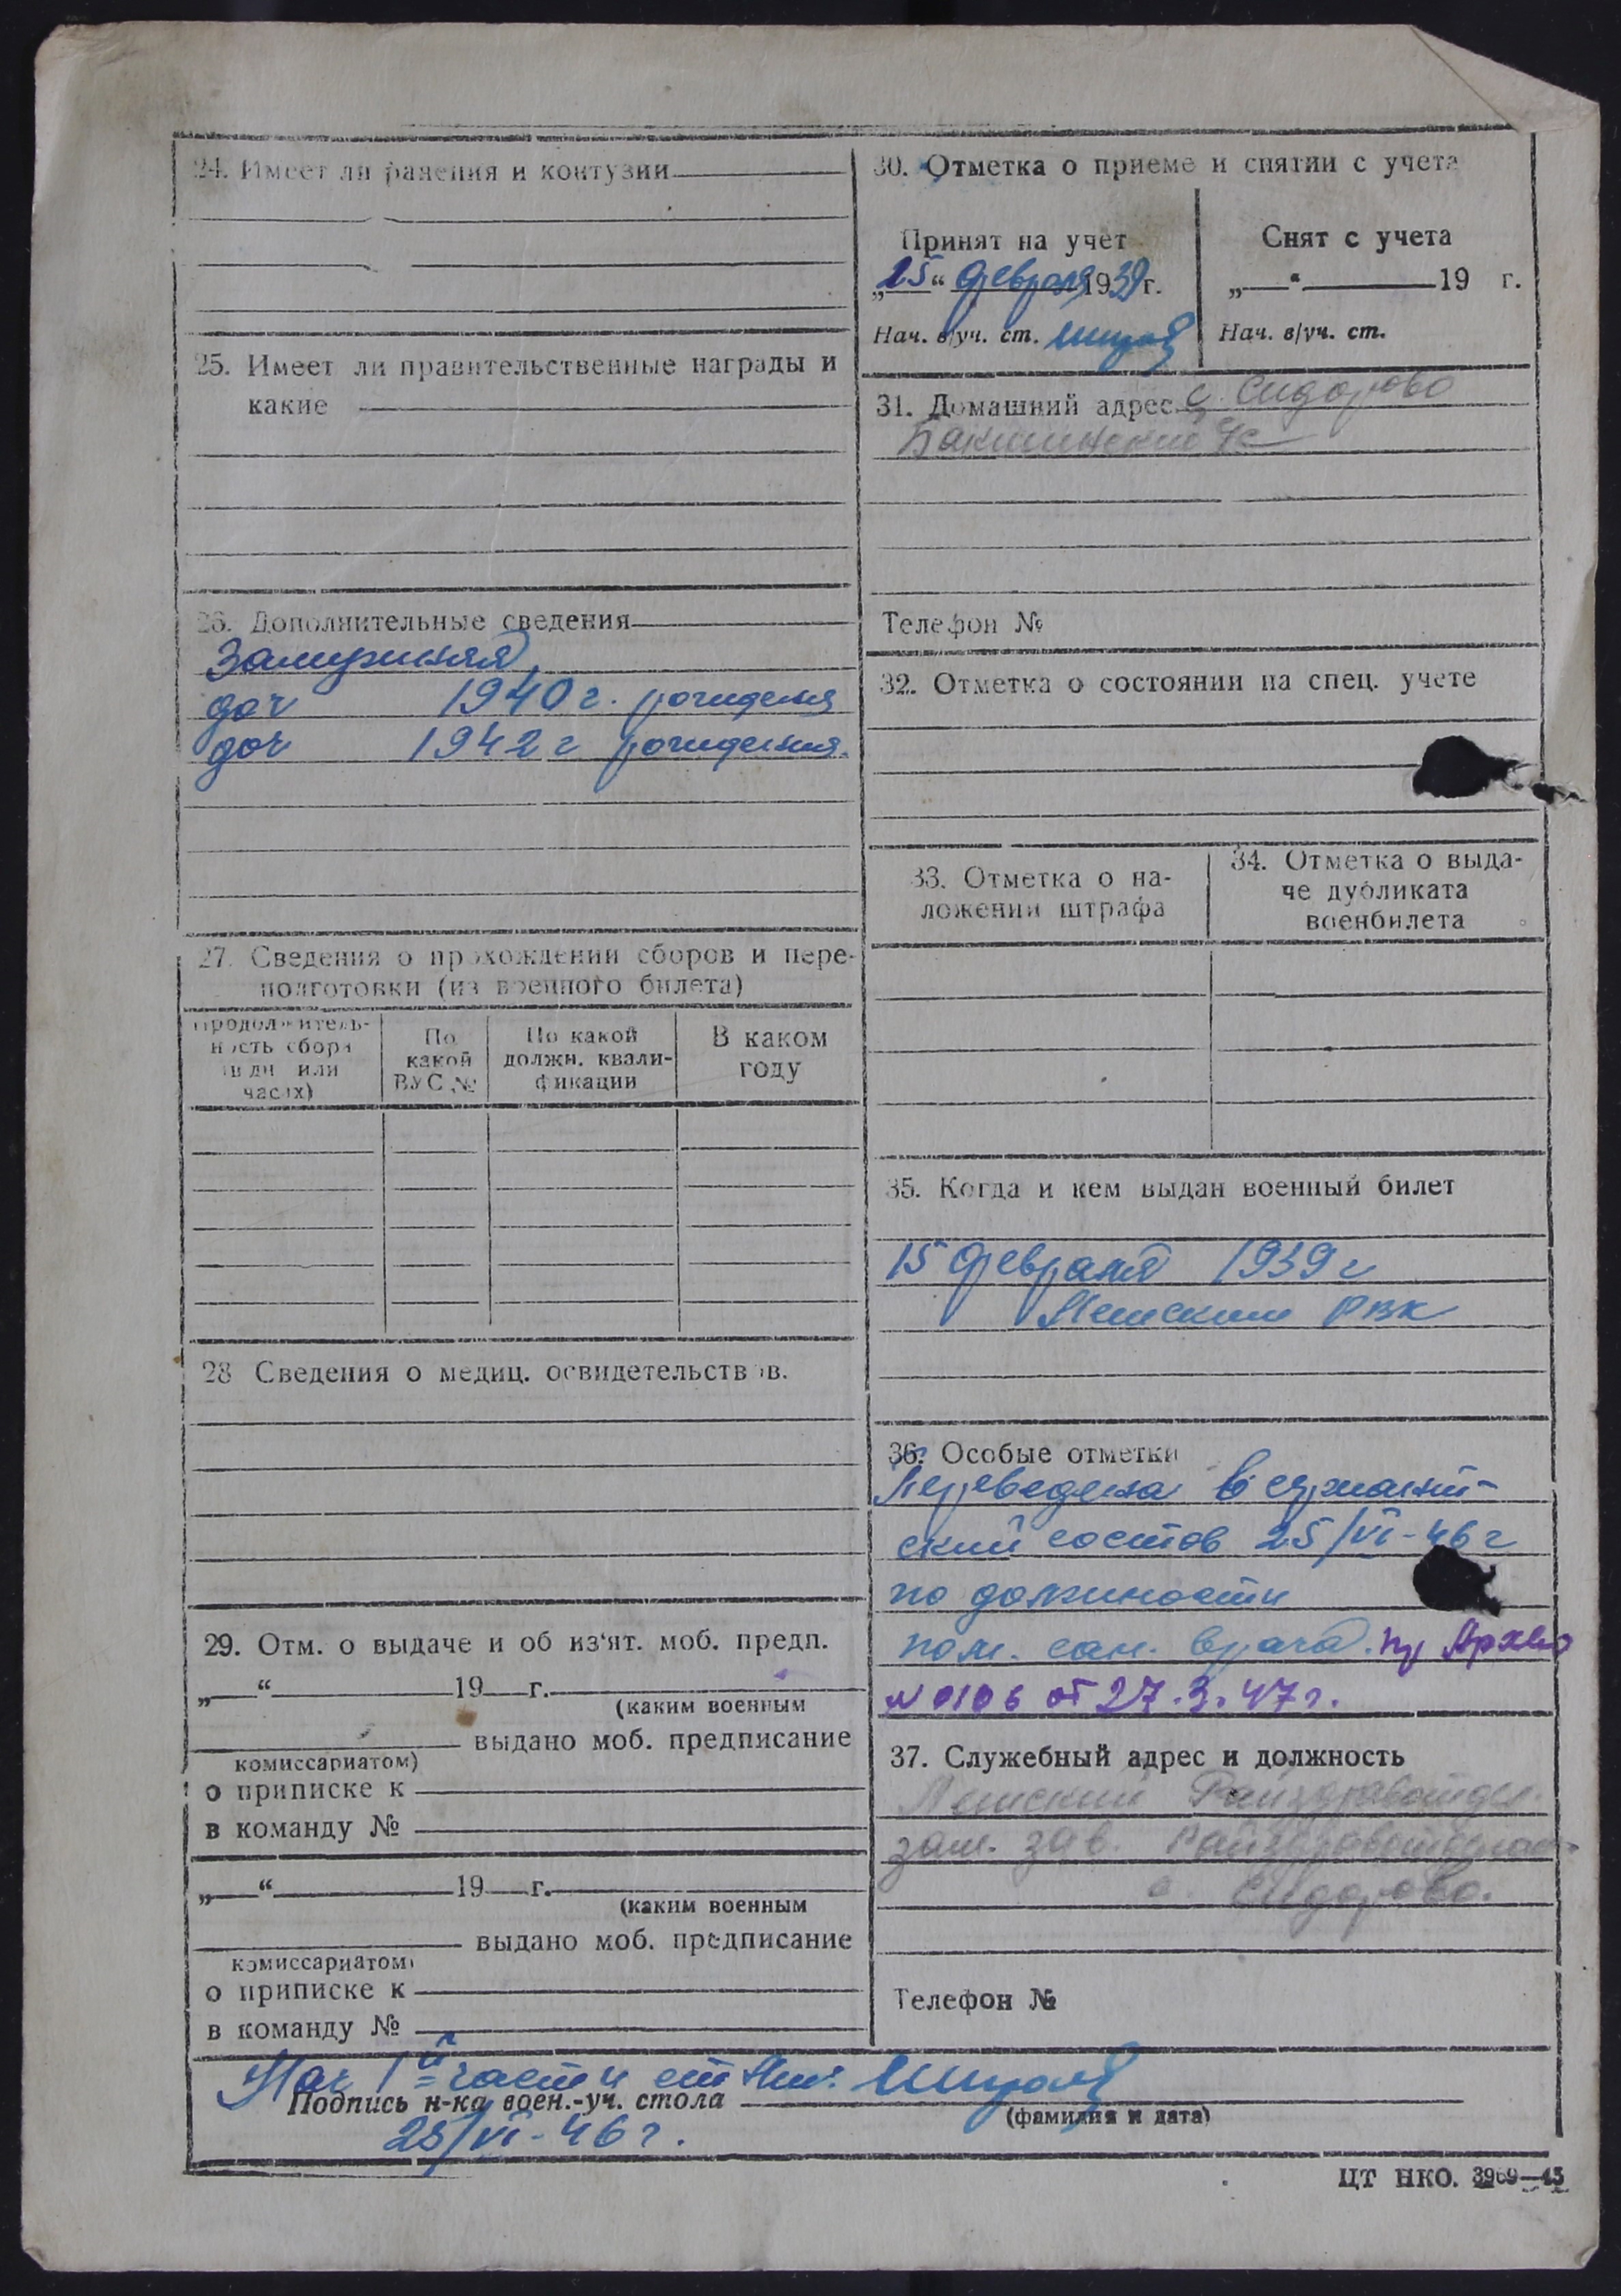 24. Имеет ли ранения и контузии
25. Имеет ли правительственные награды и
какие
26. Дополнительные сведения
Замужняя,
доч 1940 г. рождения
доч 1942 г рождения.
27. Сведения о прохождении сборов и пере-
подготовки (из военного билета)
Продолжитель-
ность сбора
(в дн или
часах)
По
какой
ВУС №
По какой
должн. квали-
фикации
В каком
году
28 Сведения о медиц. освидетельствов.
29. Отм. о выдаче и об из'ят. моб. предп.
„ “ 19 г.
(каким военным
выдано моб. предписание
комиссариатом)
о приписке к
в команду №
„ “ 19 г.
(каким военным
выдано моб. предписание
комиссариатом)
о приписке к
в команду №
30. Отметка о приеме и снятии с учета
Принят на учет
„15“ февраля 1939 г.
Нач. в/уч. ст.
Снят с учета
„ “ 19 г.
Нач. в/уч. ст.
31. Домашний адрес с. Сидорово
Телефон №
32. Отметка о состоянии на спец. учете
33. Отметка о на-
ложении штрафа
34. Отметка о выда-
че дубликата
военбилета
35. Когда и кем выдан военный билет
15 февраля 1939 г
РВК
36. Особые отметки
Переведена в сержант-
ский состав 25/VI-46 г
по должности
пом. сан. врача. пр
№ 0106 от 27.3.47 г.
37. Служебный адрес и должность
Райздравотдел
зам. зав. Райздравотделом
с. Сидорово.
Телефон №
Нач 1й части ст
Подпись н-ка воен.-уч. стола
(фамилия и дата)
25/VI-46 г.
ЦТ НКО. 3969—45